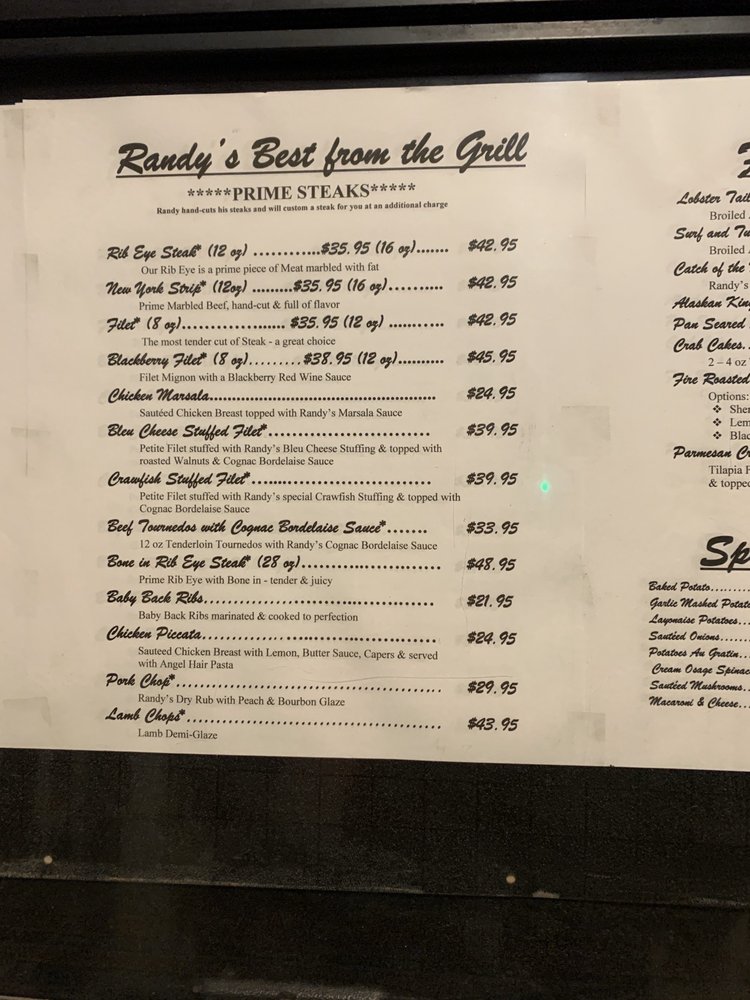 Randy's Best from the Grill
*****PRIME STEAKS*****
Randy hand-cuts his steaks and will custom a steak for you at an additional charge
Rib Eye Steak* (12 oz) ............$35.95 (16 oz)....... $42.95
Our Rib Eye is a prime piece of Meat marbled with fat
New York Strip* (12oz) .........$35.95 (16 oz).......... $42.95
Prime Marbled Beef, hand-cut & full of flavor
Filet* (8 oz)...................... $35.95 (12 oz) ........... $42.95
The most tender cut of Steak - a great choice
Blackberry Filet* (8 oz).........$38.95 (12 oz).......... $45.95
Filet Mignon with a Blackberry Red Wine Sauce
Chicken Marsala.................................................. $24.95
Sautéed Chicken Breast topped with Randy's Marsala Sauce
Bleu Cheese Stuffed Filet*.............................. $39.95
Petite Filet stuffed with Randy's Bleu Cheese Stuffing & topped with
roasted Walnuts & Cognac Bordelaise Sauce
Crawfish Stuffed Filet*................................. $39.95
Petite Filet stuffed with Randy's special Crawfish Stuffing & topped with
Cognac Bordelaise Sauce
Beef Tournedos with Cognac Bordelaise Sauce*....... $33.95
12 oz Tenderloin Tournedos with Randy's Cognac Bordelaise Sauce
Bone in Rib Eye Steak* (28 oz)......................... $48.95
Prime Rib Eye with Bone in - tender & juicy
Baby Back Ribs.......................................... $21.95
Baby Back Ribs marinated & cooked to perfection
Chicken Piccata.......................................... $24.95
Sauteed Chicken Breast with Lemon, Butter Sauce, Capers & served
with Angel Hair Pasta
Pork Chop*.............................................. $29.95
Randy's Dry Rub with Peach & Bourbon Glaze
Lamb Chops*............................................ $43.95
Lamb Demi-Glaze
Lobster Tail
Broiled
Surf and
Broiled
Catch of the
Randy's
Alaskan
Pan Seared
Crab Cakes..
2 – 4 oz
Fire Roasted
Options:
❖
❖
❖
Parmesan
Tilapia
& topped
Baked Potato.........
Garlic Mashed
Layonaise Potatoes...
Sautéed Onions.......
Potatoes Au Gratin...
Cream Osage
Sautéed Mushrooms..
Macaroni & Cheese...